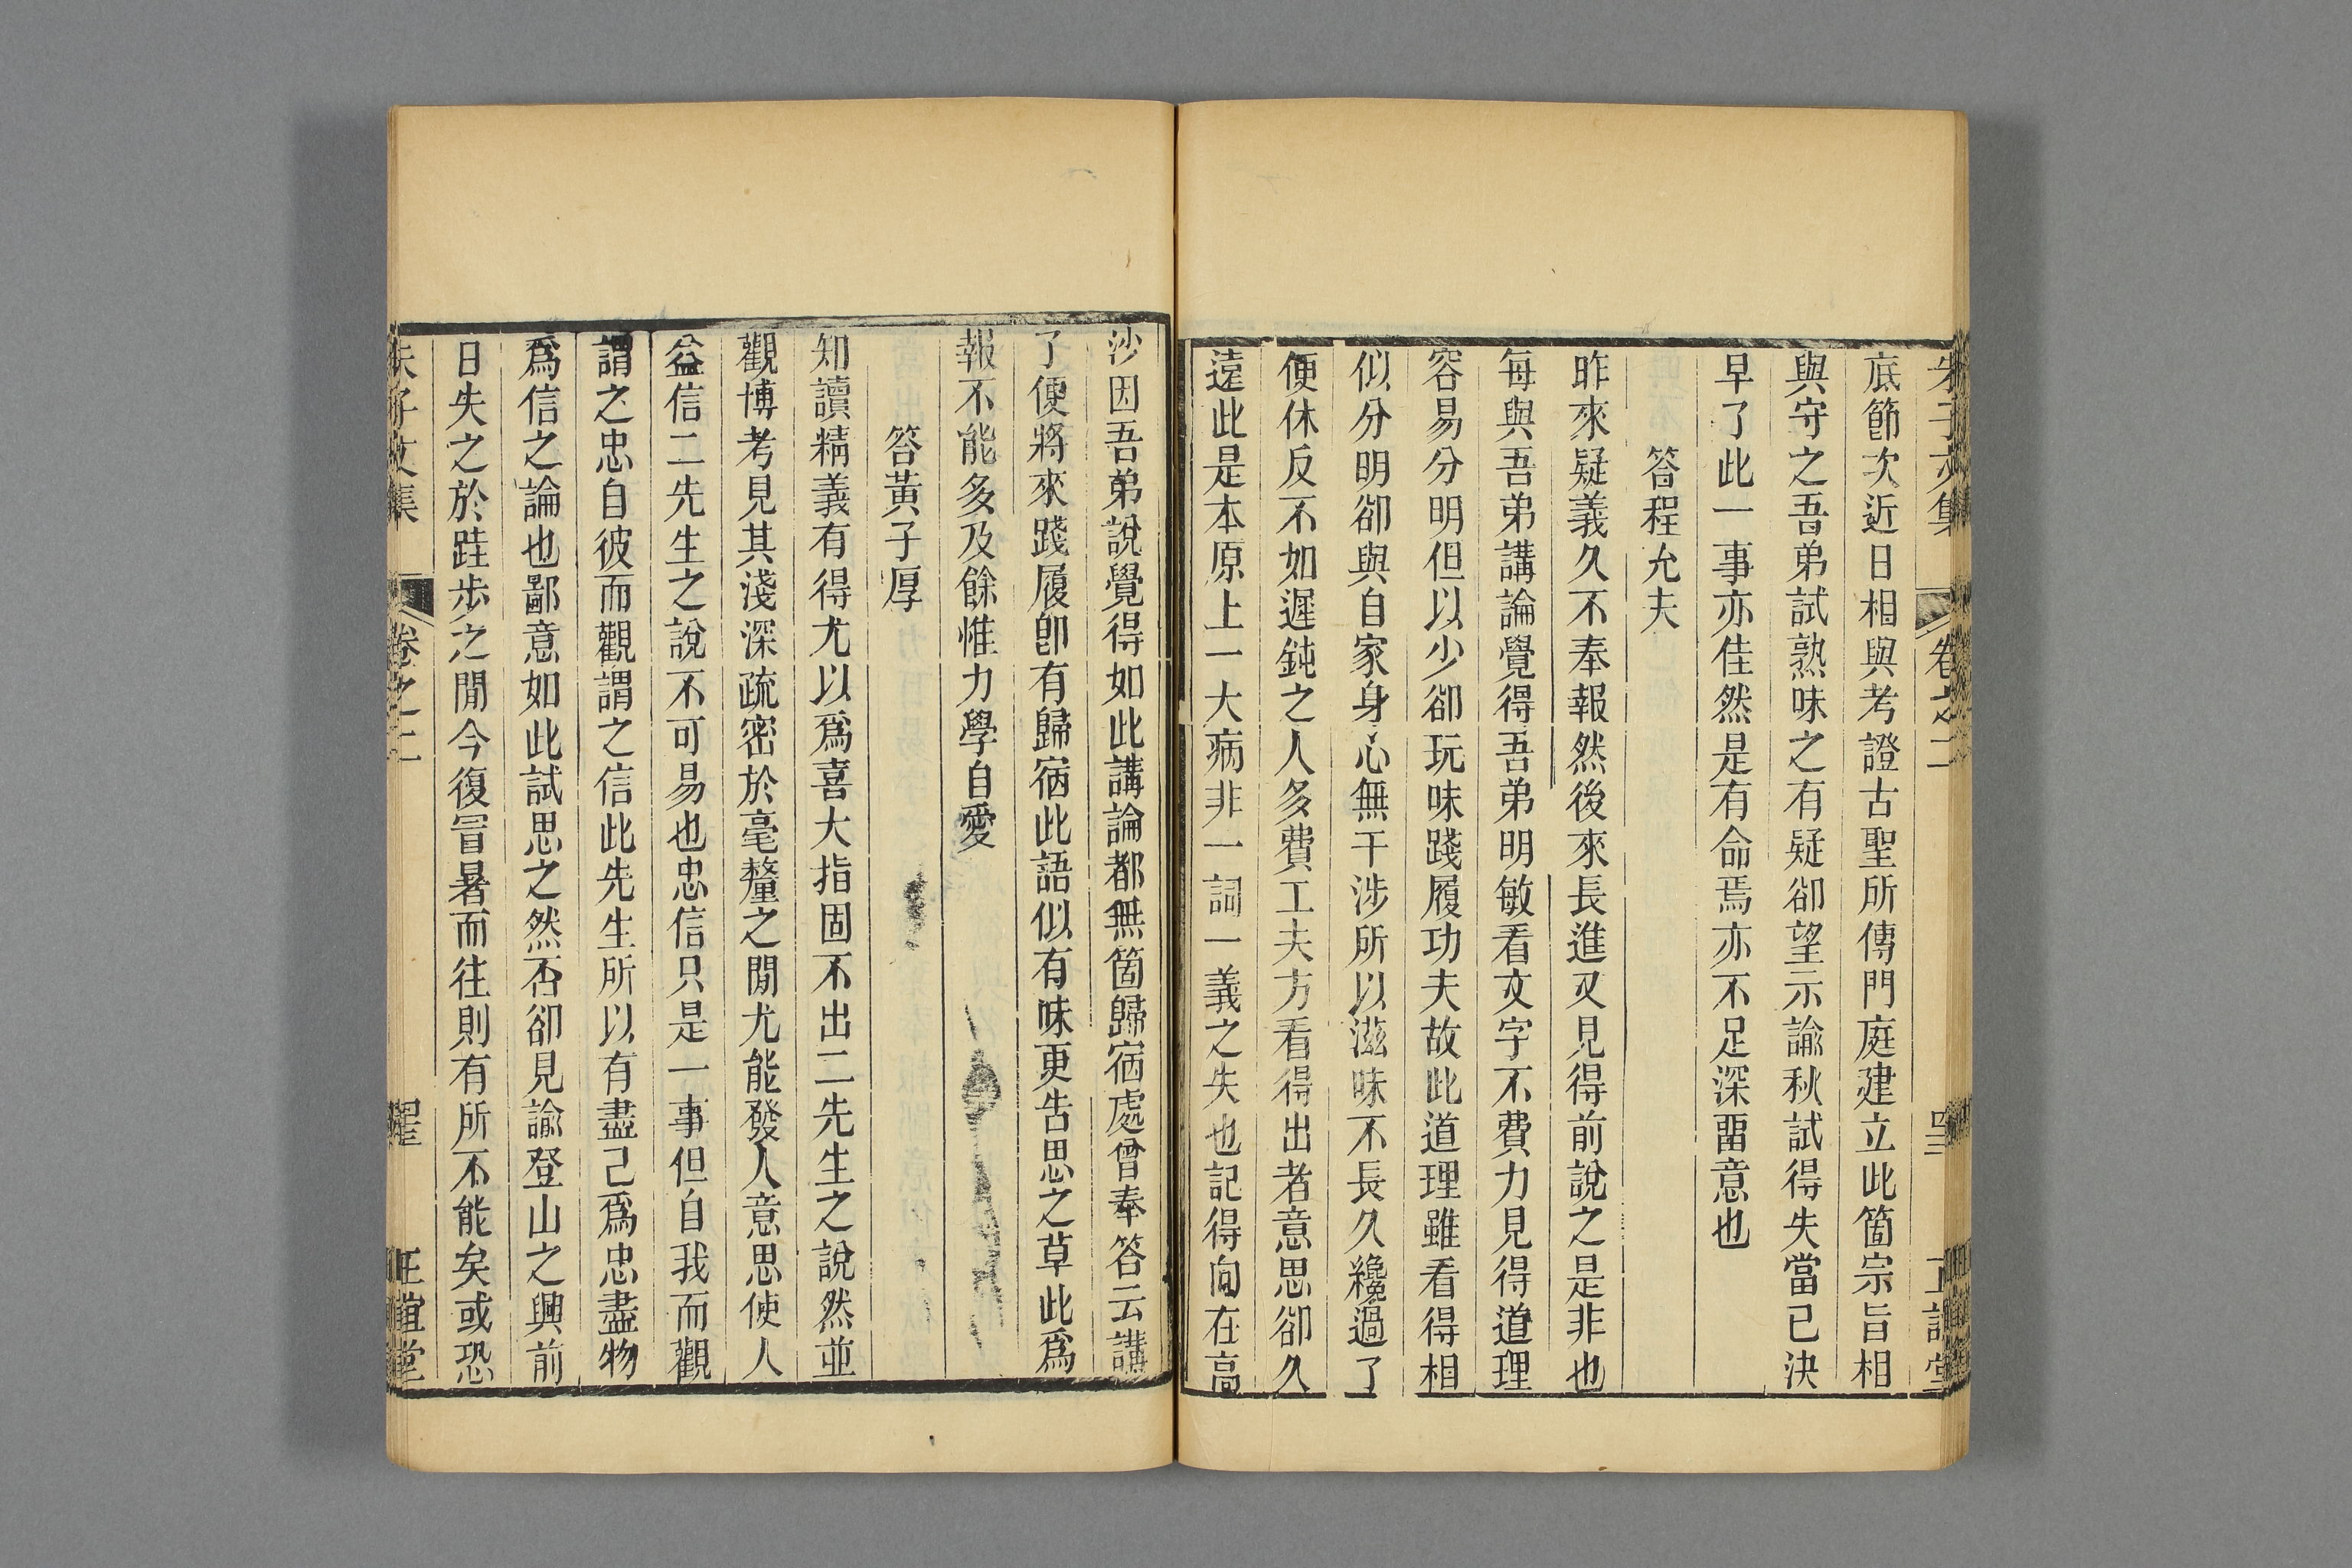 底節次近日相與考證古聖所傳門庭建立此箇宗旨相
與守之吾弟試熟味之有疑卻望示諭秋試得失當已決
早了此一事亦佳然是有命焉亦不足深畱意也
答程允夫
昨來疑義久不奉報然後來長進又見得前說之是非也
每與吾弟講論覺得吾弟明敏看文字不費力見得道理
容易分明但以少卻玩味踐履功夫故此道理雖看得相
似分明卻與自家身心無干涉所以滋味不長久纔過了
便休反不如遲鈍之人多費工夫方看得出者意思卻久
遠此是本原上一大病非一詞一義之失也記得向在高
沙因吾弟說覺得如此講論都無箇歸宿處曾奉答云講
了便將來踐履卽有歸宿此語似有味更告思之草此爲
報不能多及餘惟力學自愛
答黃子厚
知讀精義有得尤以爲喜大指固不出二先生之說然並
觀博考見其淺深疏密於毫釐之閒尤能發人意思使人
益信二先生之說不可易也忠信只是一事但自我而觀
謂之忠自彼而觀謂之信此先生所以有盡己爲忠盡物
爲信之論也鄙意如此試思之然否卻見諭登山之興前
日失之於跬步之閒今復冒暑而往則有所不能矣或恐
朱子文集
卷之二
正誼堂